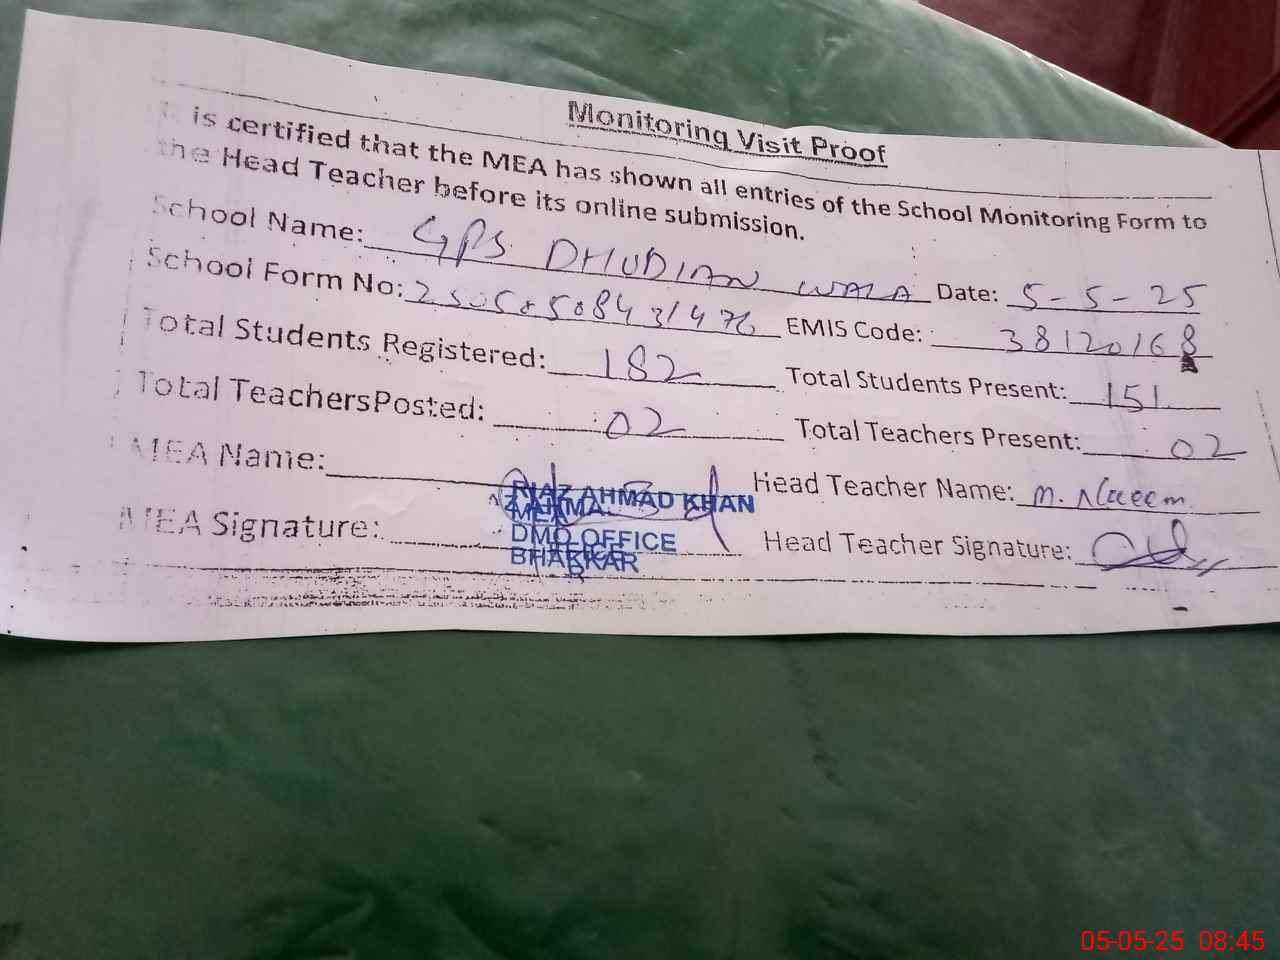 Monitoring Visit Proof
is certified that the MEA has shown all entries of the School Monitoring Form to
the Head Teacher before its online submission.
School Name: GPS DHUDIAN WALA Date: 5-5-25
School Form No: EMIS Code: 38120168
Total Students Registered: 182 Total Students Present: 151
Total TeachersPosted: 02 Total Teachers Present: 02
MEA Name: RIAZ AHMAD KHAN Head Teacher Name: M. Naeem
MEA
MEA Signature: DMO OFFICE Head Teacher Signature:
BHAKKAR
05-05-25 08:45